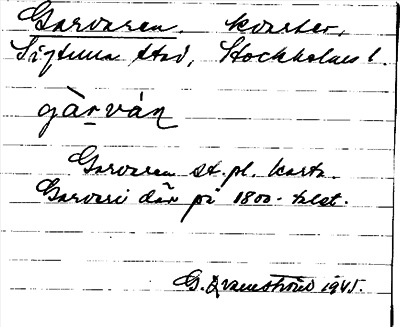 Garvaren, kvarter,
Sigtuna stad, Stockholms l.
gàrván
Garvaren st.pl. karta.
Garveri där på 1800-talet.
G. Qvarnström 1945.